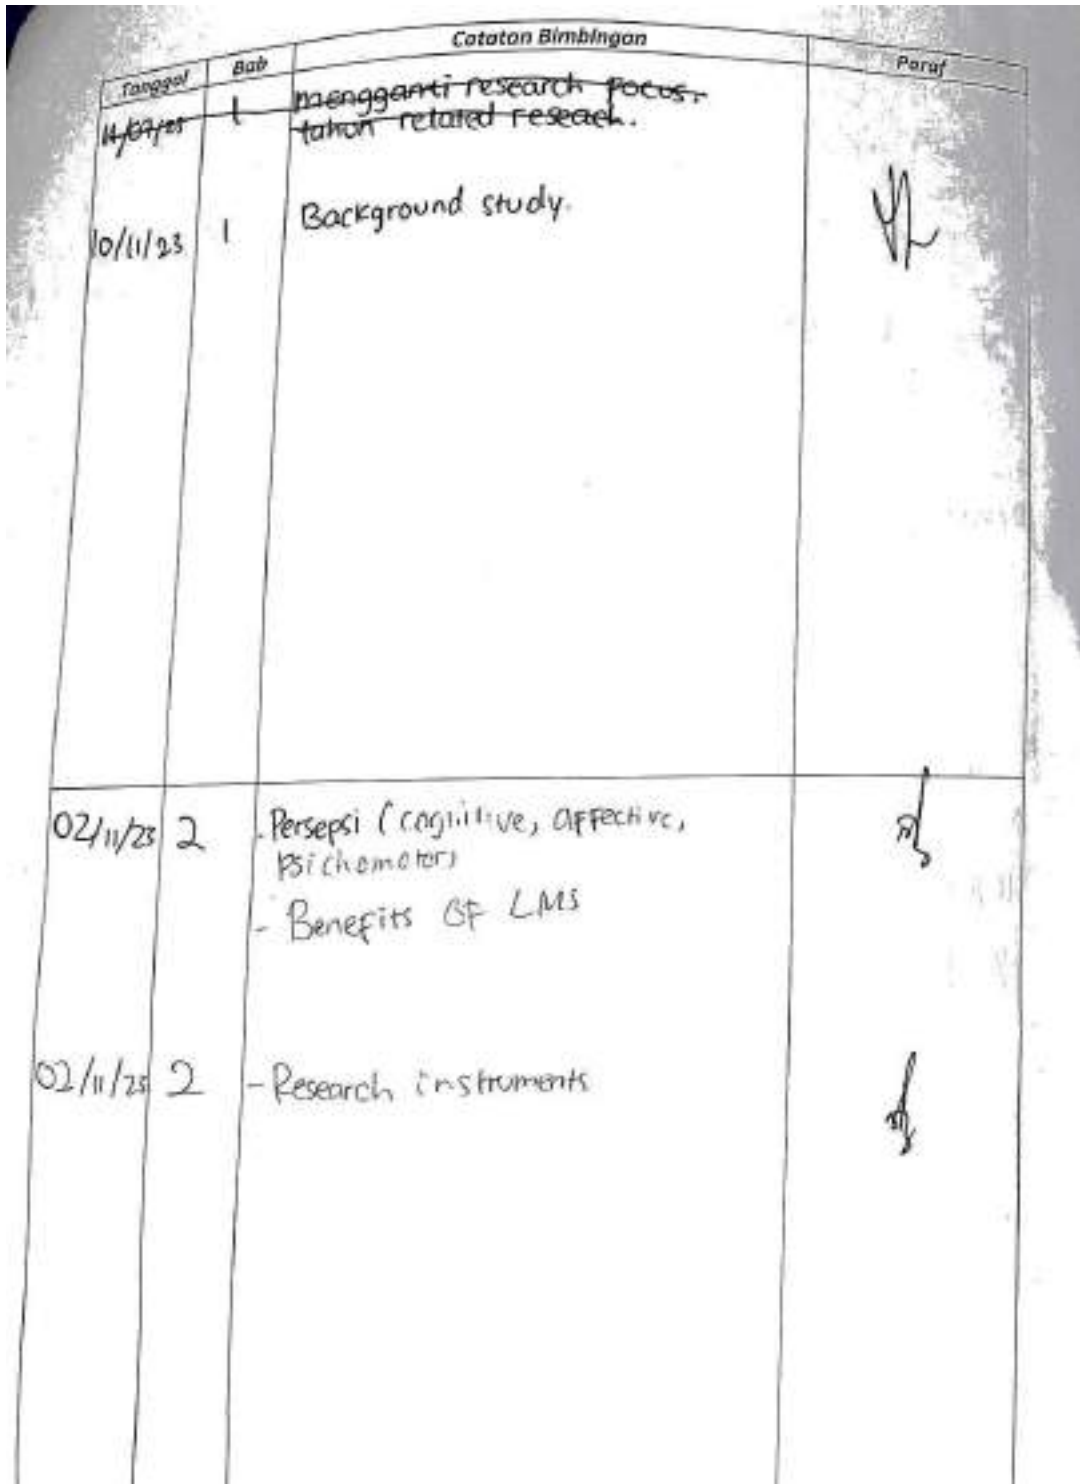 Tanggal Bab Catatan Bimbingan Paraf
11/07/23 1 mengganti research focus.
tahun related reseach.
10/11/23 1 Background study.
02/11/23 2 - Persepsi (cognitive, affective,
psichomotor)
- Benefits OF LMS
02/11/23 2 - Research instruments